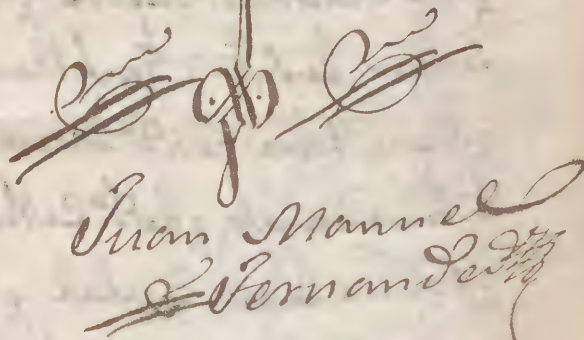 Juan Manuel
Fernandez